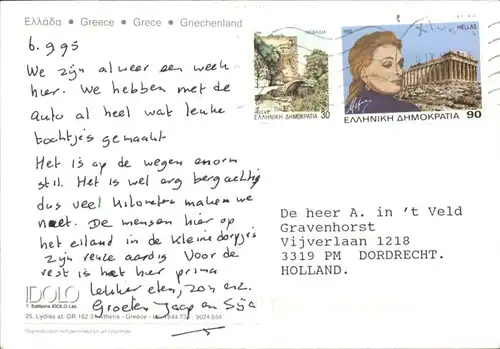 Ελλάδα • Greece • Grece • Griechenland
6.9 95
We zijn alweer een week
hier. We hebben met de
Auto al heel wat leuke
tochtjes gemaakt
Het is op de wegen enorm
stil. Het is wel erg bergachtig
dus veel kilometers maken we
niet. De mensen hier op
het eiland in de kleine dorpjes
zijn reuze aardig Voor de
rest is het hier prima
lekker eten, zon enz.
Groeten Jaap en Sija
ΛΕΙΒΑΔΙΑ
30
ΕΛΛΗΝΙΚΗ ΔΗΜΟΚΡΑΤΙΑ
HELLAS
ΕΛΛΗΝΙΚΗ ΔΗΜΟΚΡΑΤΙΑ 90
De heer A. in 't Veld
Gravenhorst
Vijverlaan 1218
3319 PM DORDRECHT.
HOLLAND.
IDOLO
© Editions IDOLO Ltd.
25, Lydias st. GR 162 31 Athens - Greece